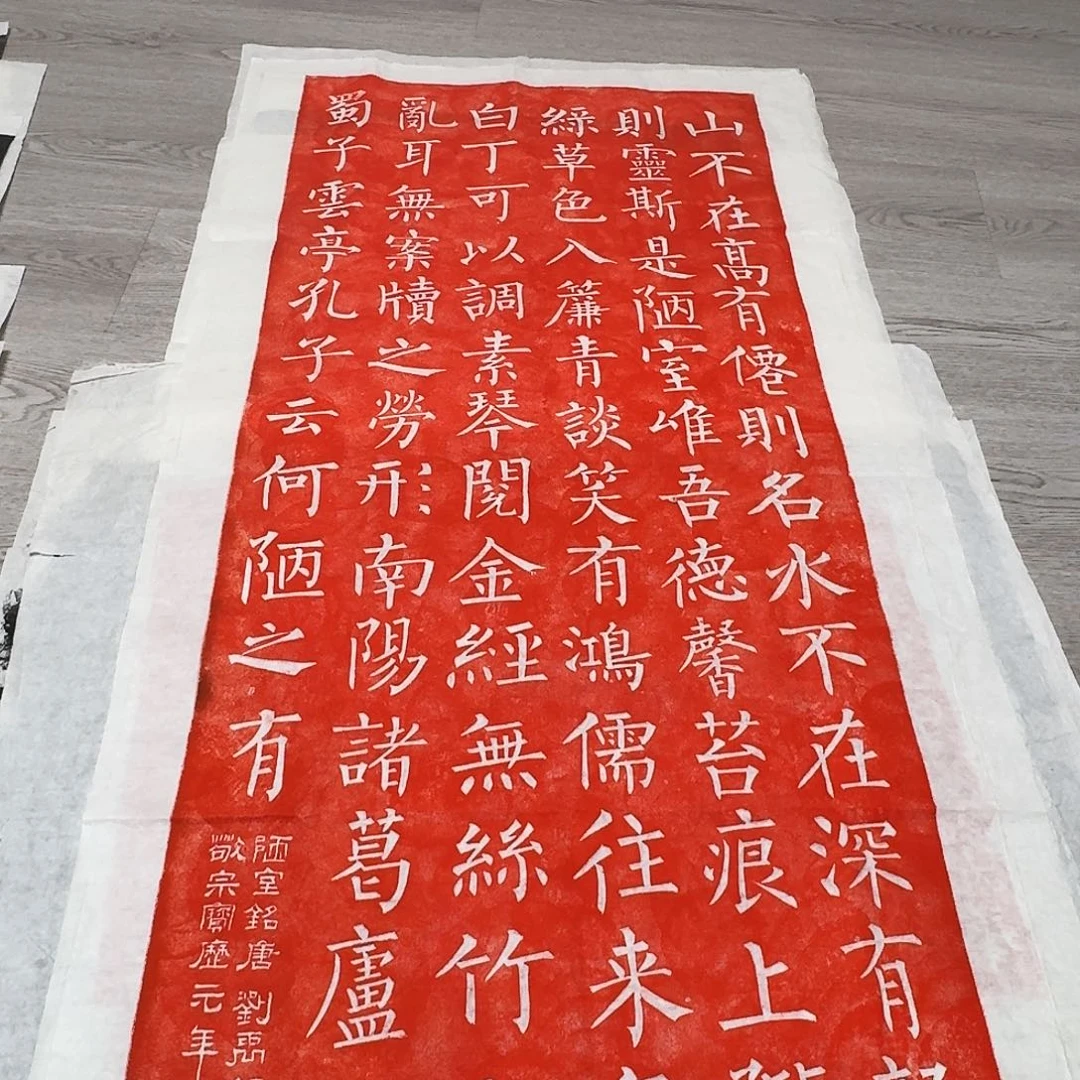 山不在髙有僊則名水不在深有
則靈斯是陋室唯吾德馨苔痕上
綠草色入簾青談笑有鴻儒往来
白丁可以調素琴閱金經無絲竹
亂耳無案牘之勞形南陽諸葛廬
蜀子雲亭孔子云何陋之有
陋室銘唐劉禹
敬宗寶歷元年